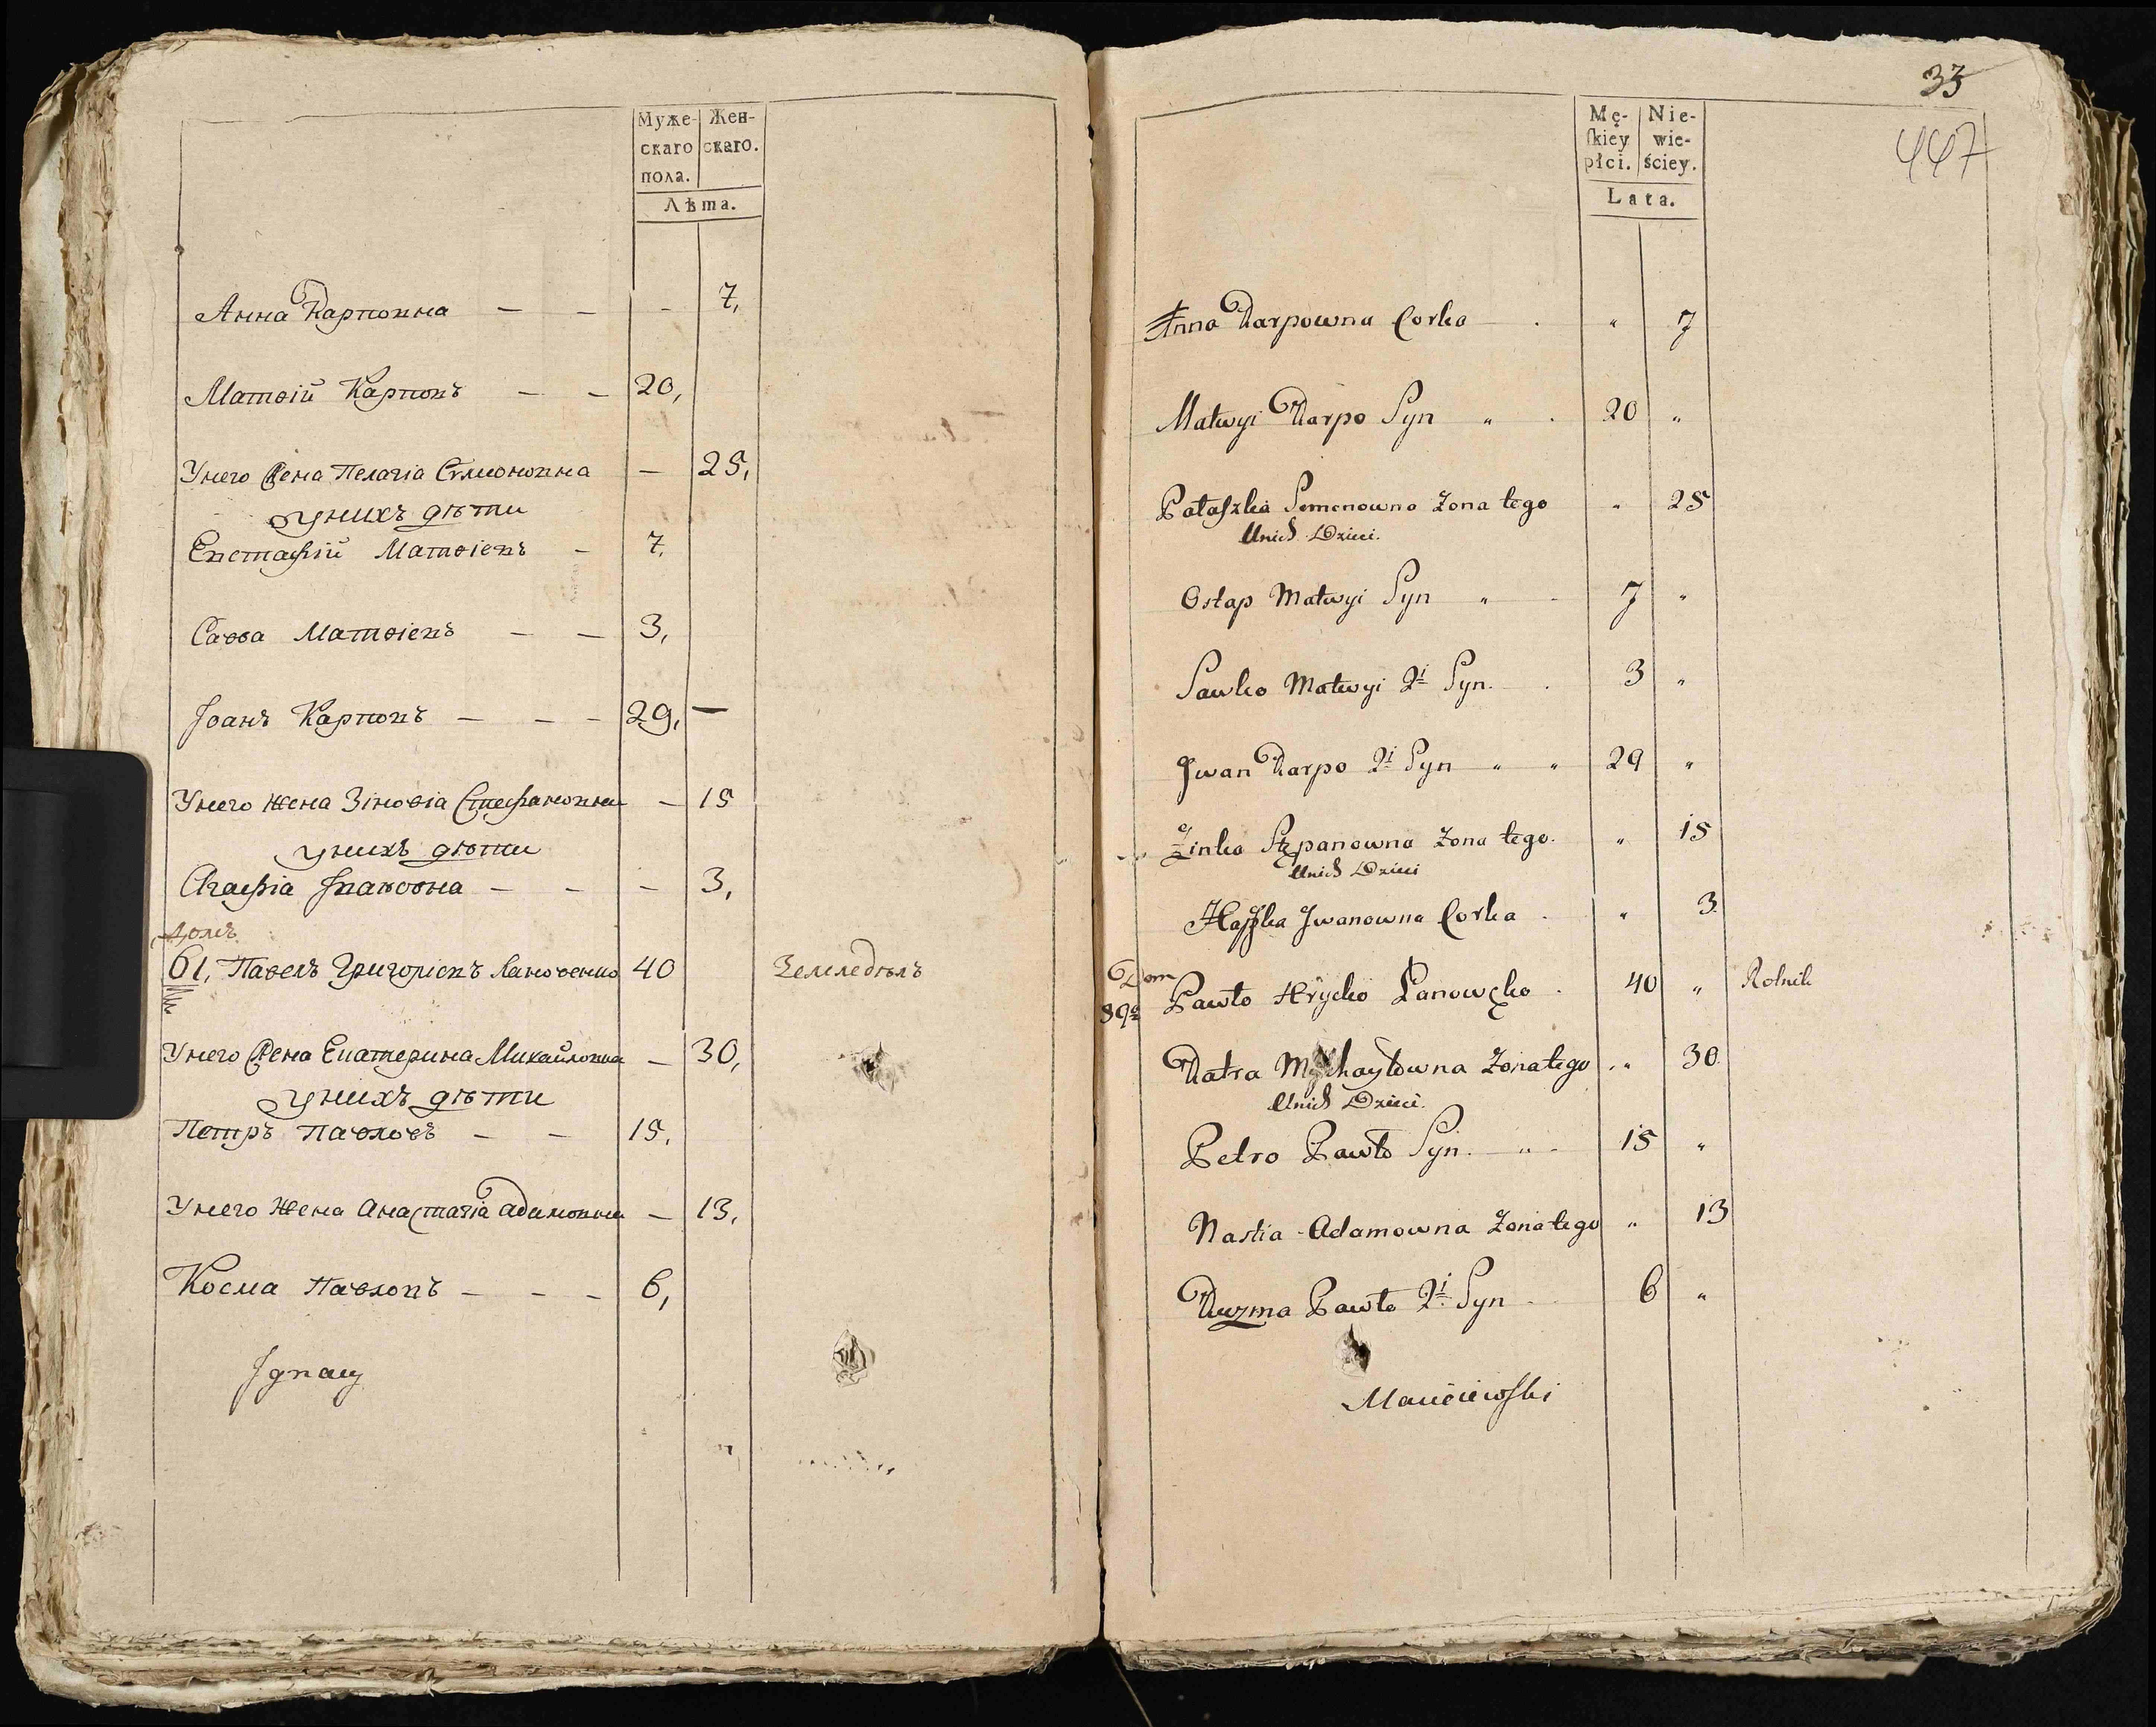 Муже- Жен-
скаго скаго.
пола.
Лѣта.
Анна Карповна — — - 7,
Матвій Карповъ — — 20,
Унего Жена Пелагія Симоновна — 25,
унихъ дѣти
Евстафій Матвіевъ - 7,
Савва Матвіевъ — — 3,
Іоанъ Карповъ — — — 29, —
Унего жена Зіновіа Стефановна — 15
унихъ дѣти
Агафіа Івановна — - — 3,
домъ
61, Павелъ Григоріевъ Лановенко 40 Земледѣлъ
Унего Жена Екатерина Михайловна — 30,
унихъ дѣти
Петръ Павловъ — — 15,
Унего жена Анастасіа Адамовна — 13,
Косма Павловъ — — — 6,
Ignacy
33
447
Mę- Nie-
skiey wie-
płci. ściey.
Lata.
Anna Karpowna Corka . „ 7
Matwyi Karpo Syn „ . 20 „
Pałaszka Semenowna Zona tego „ 25
Unich Dzieci.
Ostap Matwyi Syn „ - 7 „
Sawko Matwyi 2i Syn. . 3 „
Jwan Karpo 2i Syn „ „ 29 „
Zinka Stepanowna Zona tego. „ 15
Unich Dzieci
Haszka Jwanowna Corka . „ 3.
Dom
Pawło Hrycko Łanowczko . 40 „ Rolnik
Katra Mychayłowna Zona tego . „ 30.
Unich Dzieci.
Petro Pawło Syn. „ - 15 „
Nastia Adamowna Zona tego „ 13
Kuzma Pawło 2i Syn 6 „
Macieiewski